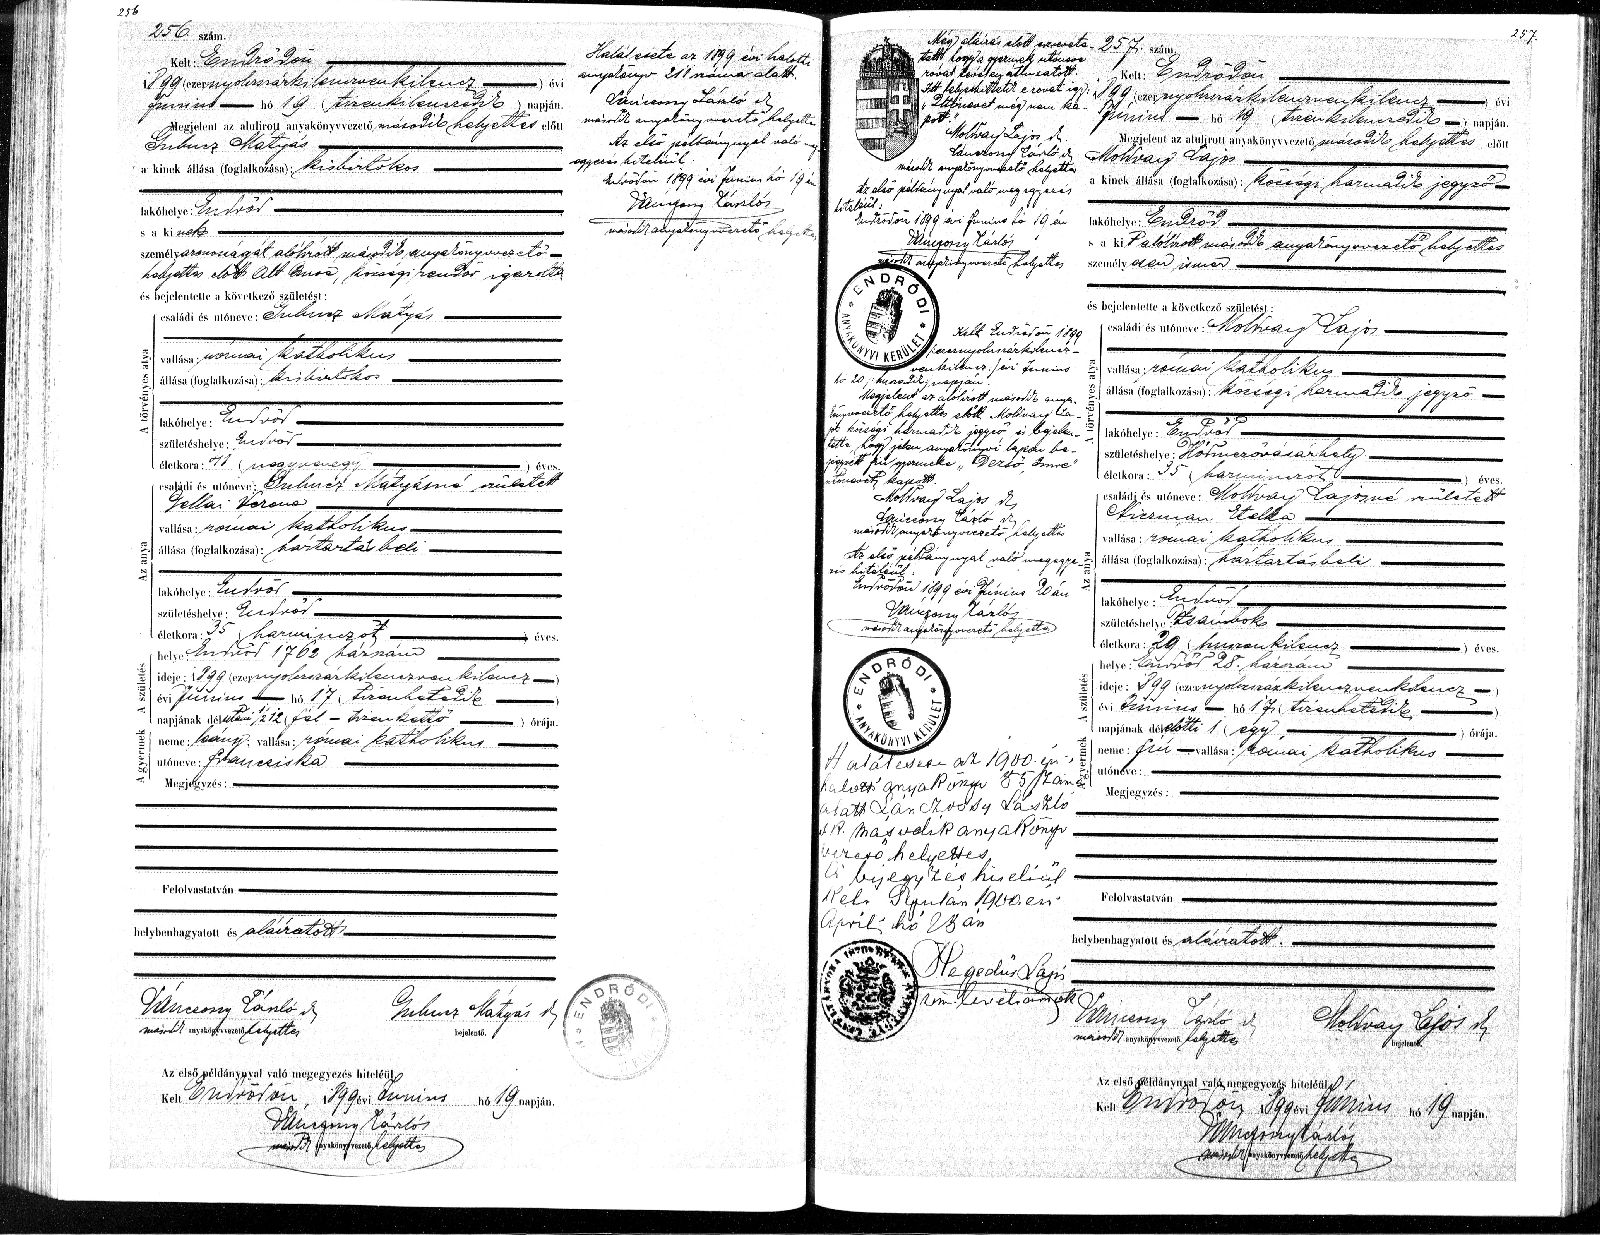 256
256. szám.
Kelt: Endrődön
1899 (ezernyolczszázkilenczvenkilencz) évi
Junius hó 19 (tizenkilenczedik) napján.
Megjelent az alulirott anyakönyvvezető második helyettes előtt
Gubucz Mátyás
a kinek állása (foglalkozása): kisbirtokos
lakóhelye: Endrőd
s a kinek
személyazonosságát alólirott második anyakönyvvezető
helyettes előtt Alt Imre, községi rendőr igazolta
és bejelentette a következő születést:
A törvényes atya
családi és utóneve: Gubucz Mátyás
vallása: római katholikus
állása (foglalkozása): kisbirtokos
lakóhelye: Endrőd
születéshelye: Endrőd
életkora: 41 (negyvenegy) éves.
Az anya
családi és utóneve: Gubucz Mátyásné született
Gellai Verona
vallása: római katholikus
állása (foglalkozása): háztartásbeli
lakóhelye: Endrőd
születéshelye: Endrőd
életkora: 35 (harminczöt) éves.
A gyermek A születés
helye: Endrőd 1762 házszám
ideje: 1899 (ezernyolczszázkilenczvenkilencz)
évi Junius hó 17 (tizenhetedik
napjának délutáni 1/2 12 (fél-tizenkettő) órája.
neme: leány; vallása: római katholikus
utóneve: Francziska
Megjegyzés:
Felolvastatván
helybenhagyatott és aláiratott
Vánczony László sk
második anyakönyvvezető helyettes
Gubucz Mátyás sk
bejelentő.
Az első példánynyal való megegyezés hiteléül
Kelt Endrődön, 1899 évi Junius hó 19 napján.
Vánczony László
második anyakönyvvezető helyettes
Halálesete az 1899 évi halotti
anyakönyv 211 száma alatt.
Vánczony László sk
második anyakönyvvezető helyettes
Az első példánynyal való meg-
egyezés hiteléül.
Endrődön 1899 évi Junius hó 19 én
Vánczony László
második anyakönyvvezető helyettes
ENDRŐDI
257.
Még aláirás előtt
tett hogy a gyermek utóneve
rovat tévesen áthuzatott.
Itt helyesbittetik e rovat igy:
"Utónevet még nem ka-
pott."
Molvay Lajos sk
Vánczony László sk
második anyakönyvvezető helyettes
Az első példánynyal való megegyezés
hiteléül.
Endrődön 1899 évi Junius hó 19 én
Vánczony László
második anyakönyvvezető helyettes
ENDRŐDI ANYAKÖNYVI KERÜLET
Kelt Endrődön 1899
(ezernyolczszázkilencz-
venkilencz) évi Junius
hó 20 huszadik napján.
Megjelent az alólirott második anya-
könyvvezető helyettes előtt Molvay La-
jos községi harmadik jegyző és bejelen-
tette, hogy jelen anyakönyvi lapon be-
jegyzett fiu gyermeke "Dezső, Imre"
utónevet kapott.
Molvay Lajos sk
Vánczony László sk
második anyakönyvvezető helyettes
Az első példánynyal való megegye-
zés hiteléül.
Endrődön 1899 évi Junius 20 án
Vánczony László
második anyakönyvvezető helyettes
ENDRŐDI ANYAKÖNYVI KERÜLET
Halálesete az 1900. évi
halotti anyakönyv 85 száma
alatt Vánczony László
sk. második anyakönyv
vezető helyettes
E bejegyzés hiteléül
Kelt Gyulán 1900 évi
Április hó 23 án
Hegedűs Lajos
257. szám.
Kelt: Endrődön
1899 (ezernyolczszázkilenczvenkilencz) évi
Junius hó 19 (tizenkilenczedik) napján.
Megjelent az alulirott anyakönyvvezető második helyettes előtt
Molvay Lajos
a kinek állása (foglalkozása): községi harmadik jegyző
lakóhelye: Endrőd
s a kit alólirott második anyakönyvvezető helyettes
személyesen ismer
és bejelentette a következő születést:
A törvényes atya
családi és utóneve: Molvay Lajos
vallása: római katholikus
állása (foglalkozása): községi harmadik jegyző
lakóhelye: Endrőd
születéshelye: Hódmezővásárhely
életkora: 35 (harminczöt) éves.
Az anya
családi és utóneve: Molvay Lajosné született
Etelka
vallása: római katholikus
állása (foglalkozása): háztartásbeli
lakóhelye: Endrőd
születéshelye:
életkora: 29 (huszonkilencz) éves.
A gyermek A születés
helye: Endrőd 28. házszám
ideje: 1899 (ezernyolczszázkilenczvenkilencz)
évi Junius hó 17 (tizenhetedik)
napjának délelőtti 1 (egy) órája.
neme: fiu vallása: római katholikus
utóneve:
Megjegyzés:
Felolvastatván
helybenhagyatott és aláiratott.
Vánczony László sk
második anyakönyvvezető helyettes
Molvay Lajos sk
bejelentő.
Az első példánynyal való megegyezés hiteléül
Kelt Endrődön, 1899 évi Junius hó 19 napján.
Vánczony László
második anyakönyvvezető helyettes